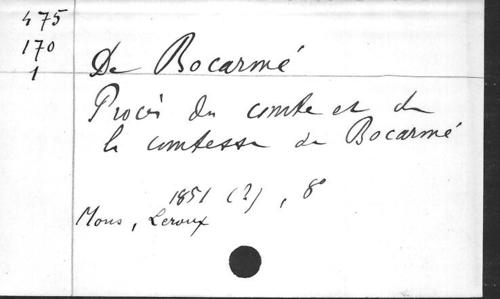 475
170
1
De Bocarmé
Procès du comte et de
la comtesse de Bocarmé
1851 (?), 8°
Mons, Leroux